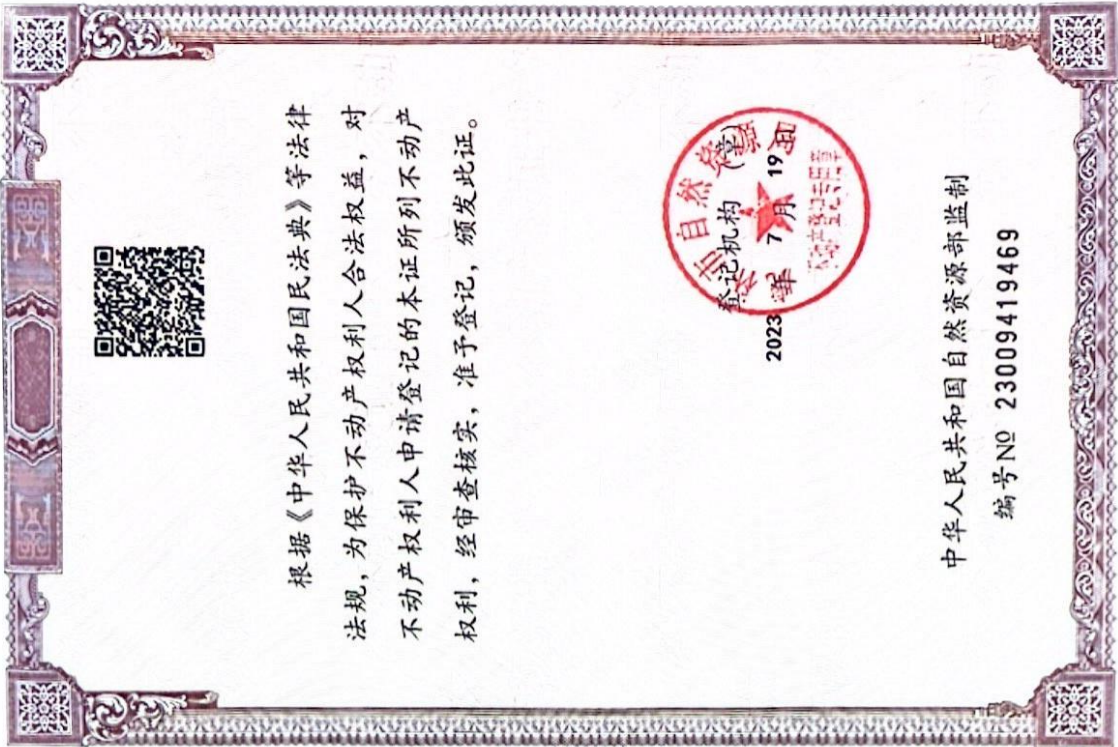 根据《中华人民共和国民法典》等法律
法规，为保护不动产权利人合法权益，对
不动产权利人申请登记的本证所列不动产
权利，经审查核实，准予登记，颁发此证。
登记机构（章）
2023年 7月 19日
市自然资
不动产登记专用章
中华人民共和国自然资源部监制
编号№ 23009419469